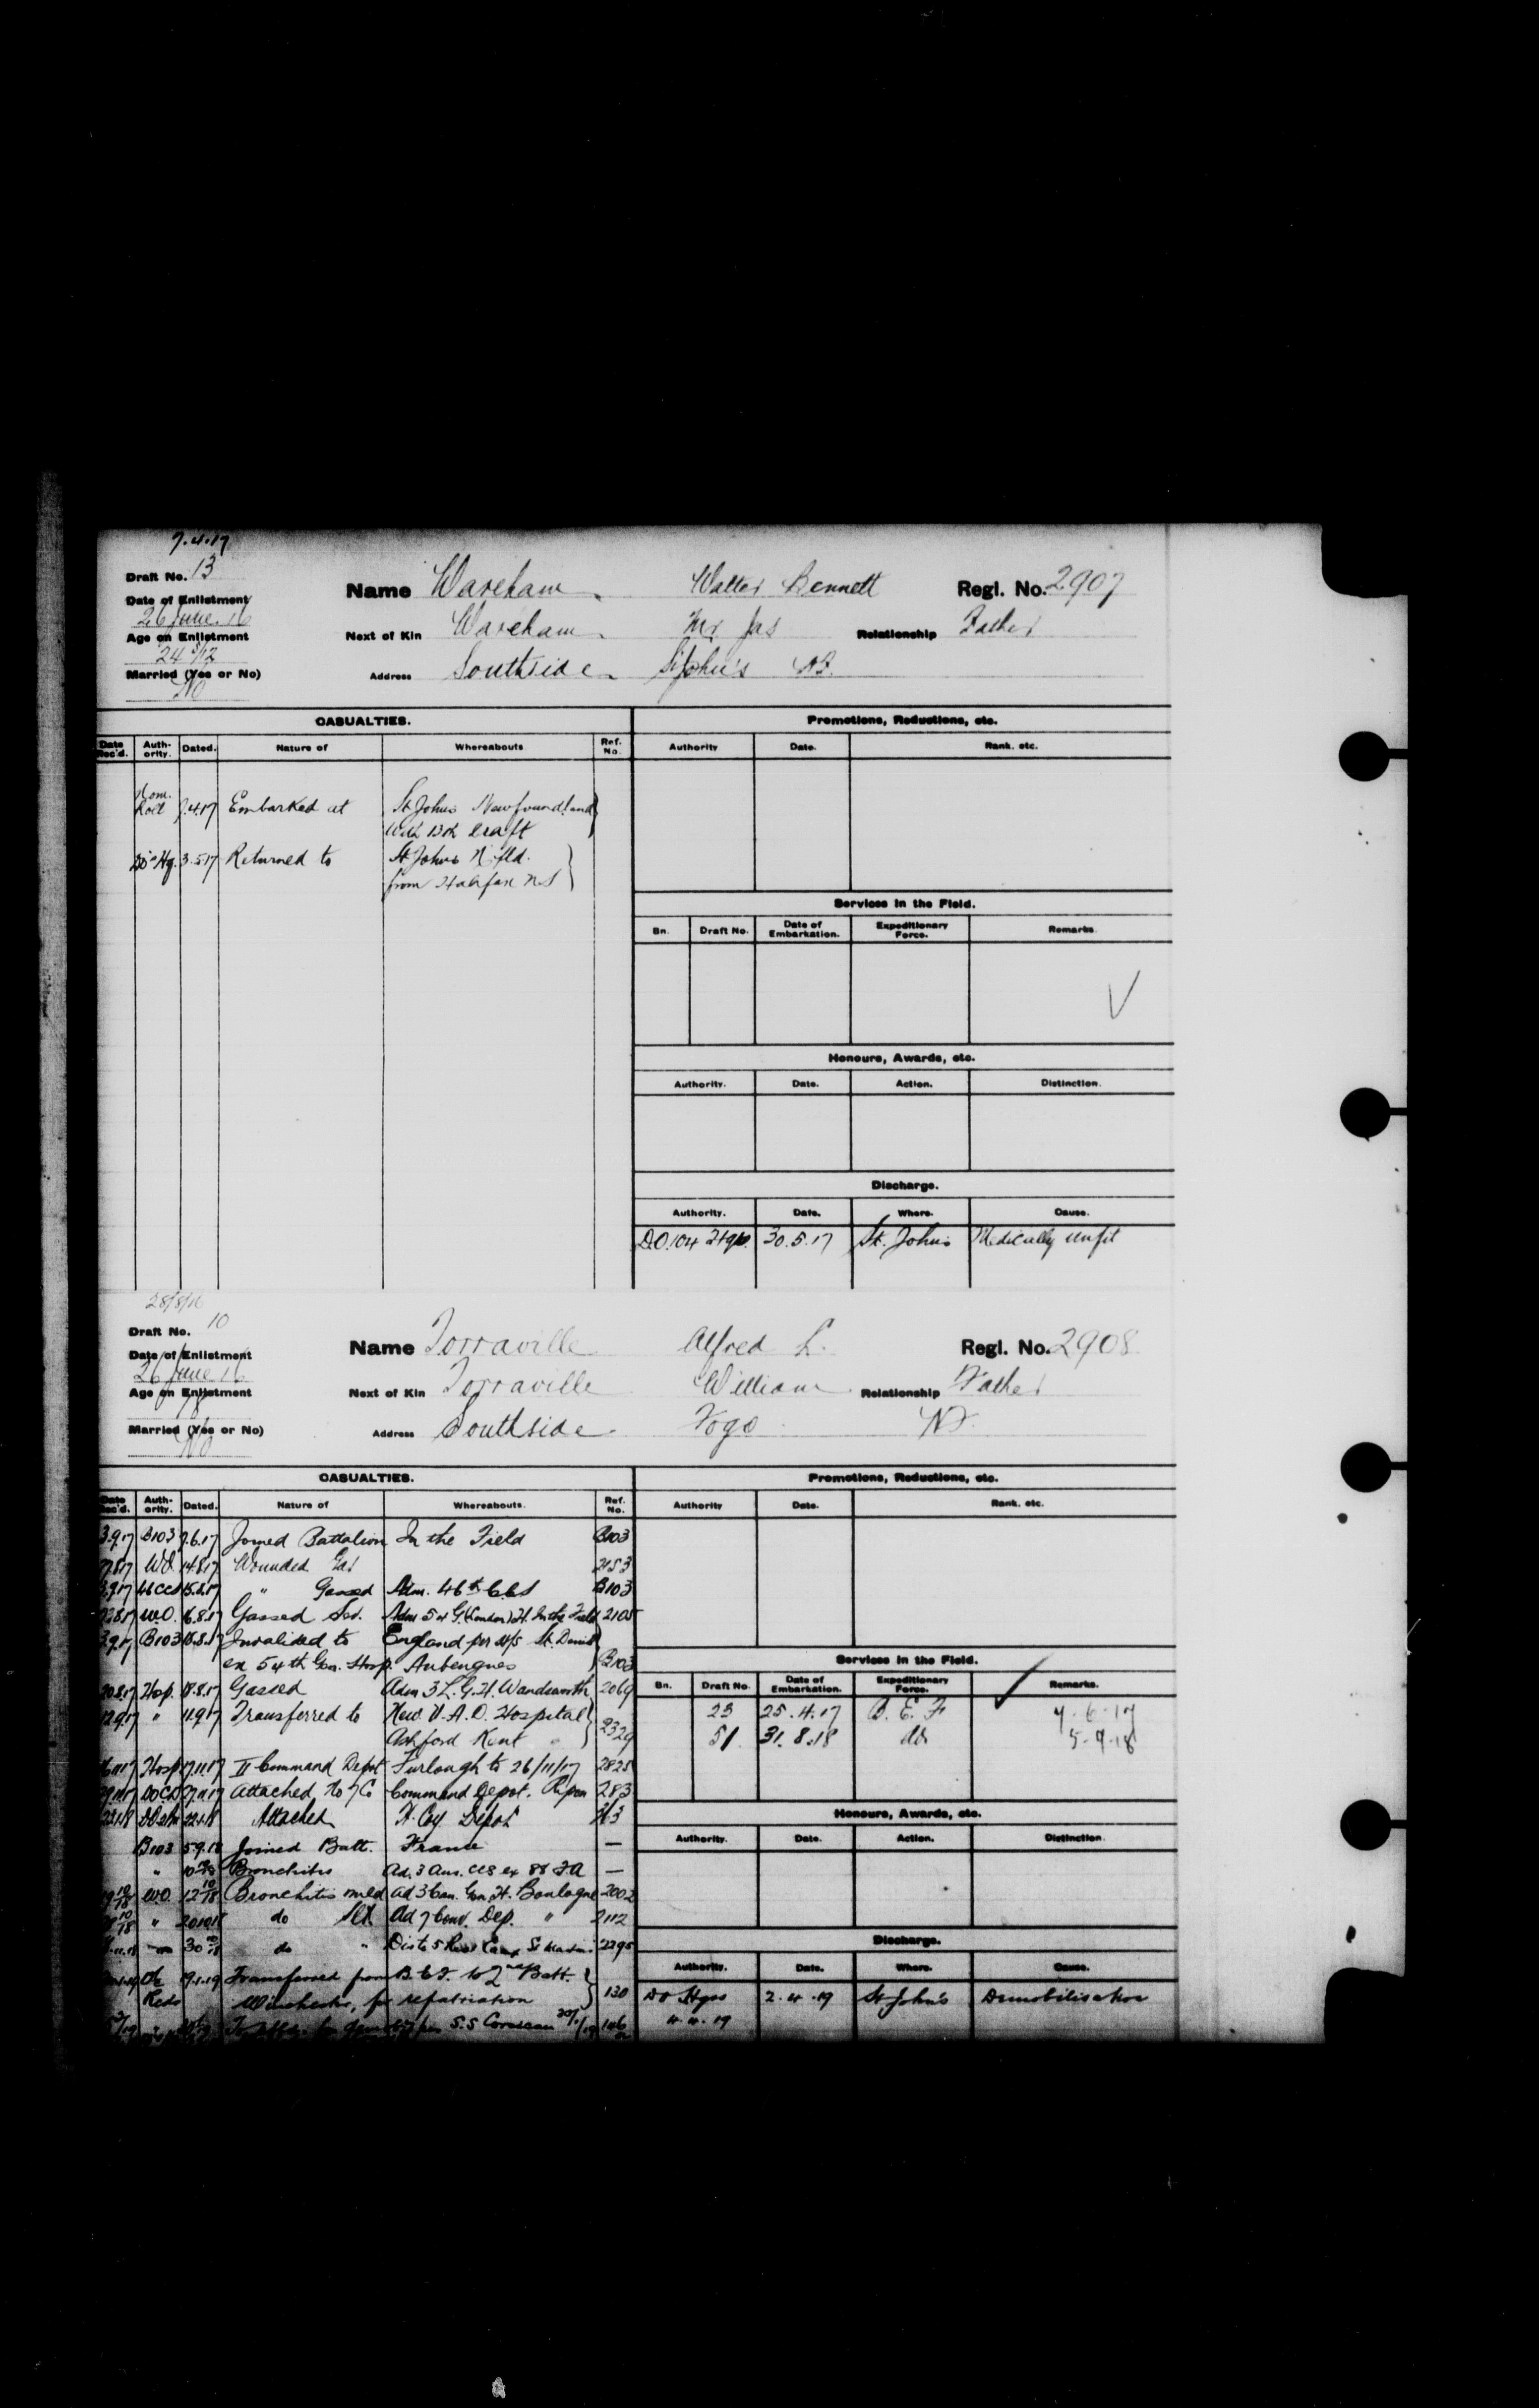 7.4.17
Draft No. 13
Name Wareham Walter Bennett Regl. No. 2907
Date of Enlistment
26 June 16
Next of Kin Wareham Mr Jas Relationship Father
Age on Enlistment
24 5/12
Address Southside St John's NF.
Married (Yes or No)
No
CASUALTIES. Promotions, Reductions, etc.
Date Rec'd. Auth-ority. Dated. Nature of Whereabouts Ref. No. Authority Date. Rank. etc.
Nom. Roll 7.4.17 Embarked at St Johns Newfoundland
With 13th Draft
Hq. 3.5.17 Returned to St Johns N.fld.
from Halifax N.S
Services in the Field.
Bn. Draft No. Date of Embarkation. Expeditionary Force. Remarks.
Honours, Awards, etc.
Authority. Date. Action. Distinction.
Discharge.
Authority. Date. Where. Cause.
D.O. 104 30.5.17 St. John's Medically unfit
28/8/16
Draft No. 10
Name Torraville Alfred L. Regl. No. 2908
Date of Enlistment
26 June 16
Next of Kin Torraville William Relationship Father
Age on Enlistment
18
Address Southside Fogo NF.
Married (Yes or No)
No
CASUALTIES. Promotions, Reductions, etc.
Date Rec'd. Auth-ority. Dated. Nature of Whereabouts. Ref. No. Authority Date. Rank. etc.
3.9.17 B103 7.6.17 Joined Battalion In the Field B103
14.8.17 Wounded Gas 2153
3.9.17 46 CCS 15.8.17 " Gassed Adm. 46th CCS B103
W.O. 16.8.17 Gassed Adm 54 G. (London) H. In the Field 2105
3.9.17 B103 18.8.17 Invalided to England per H/S St. Denis
ex 54th Gen. Hosp. Aubengues B103
Services in the Field.
20.8.17 Hosp. 18.8.17 Gassed Adm 3 L. G. H. Wandsworth 2069
Bn. Draft No. Date of Embarkation. Expeditionary Force. Remarks.
12.9.17 " 11.9.17 Transferred to New V.A.D. Hospital
Ashford Kent 2329
23 25.4.17 B. E. F 7.6.17
51 31.8.18 do 5.9.18
Hosp 17.11.17 II Command Depot Furlough to 26/11/17 2825
Attached to 7 Co Command Depot. Ripon 283
22.1.18 Attached H. Coy Depot
Honours, Awards, etc.
Authority. Date. Action. Distinction.
B103 5.9.18 Joined Batt. France —
" Bronchitis Ad. 3 Aus. CCS ex 88 F.A —
W.O. 12 10/18 Bronchitis mild Ad 3 Can. Gen. H. Boulogne 2002
" 20.10.18 do Ad 7 Conv. Dep. " 2112
30 10/18 do " Dis to 5 Rest Camp St Martins 2295
Discharge.
Authority. Date. Where. Cause.
19.1.19 Transferred from B.E.F. to 2nd Batt.
Winchester, for repatriation 130
DO Hqrs 2.4.19 St. John's Demobilisation
4.4.19
S.S Corsican